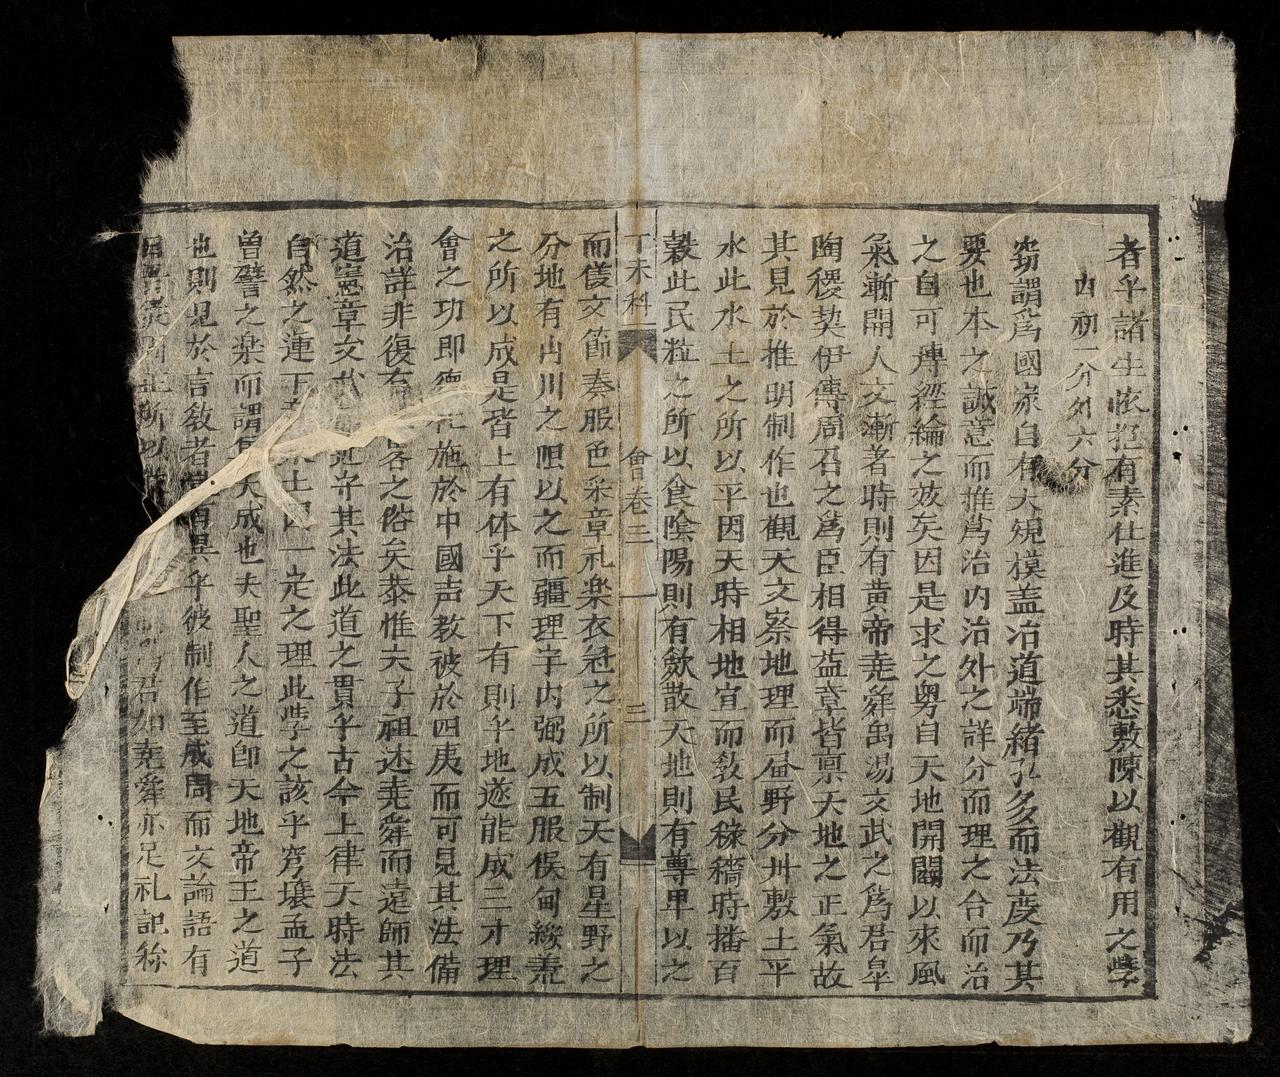 者乎諸生依抱有素仕進及時其悉敷陳以觀有用之學
内初一分外六分
窃謂為國家自有大規模盖治道端緒孔多而法度乃其
要也本之誠意而推為治内治外之詳分而理之合而治
之自可慱經綸之放矣因是求之粤自天地開闢以來風
氣漸開人文漸著時則有黄帝尭舜禹湯文武之為君皐
陶稷契伊傅周召之為臣相得益章皆禀天地之正氣故
其見於推明制作也觀天文察地理而畫野分州敷土平
水此水土之所以平因天時相地宜而教民稼穡時播百
糓此民粒之所以食陰陽則有歛散天地則有尊卑以之
丁未科
會卷三
一
三
而儀文節奏服色采章礼楽衣冠之所以制天有星野之
分地有山川之阻以之而疆理宇内弼成五服侯甸綏荒
之所以成是皆上有体乎天下有則乎地遂能成三才理
會之功即德 施於中國声教被於四夷而可見其法備
治詳非復有 畧之俗矣恭惟夫子祖述尭舜而遠師其
道憲章文武 近守其法此道之貫乎古今上律天時法
自然之運下 水土因一定之理此學之該乎穹壤孟子
曽譬之楽而謂 大成也夫聖人之道即天地帝王之道
也則見於言敎者 異乎彼制作至成周而文論語有
所以 君如尭舜亦足礼記称